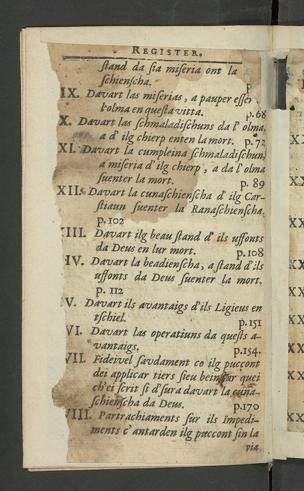 REGISTER.
stand da sia miseria ont la
schienscha. p.
IX. Davart las miserias, a pauper esser
l'olma en questa vitta. p.68
X. Davart las schmaladischuns da l' olma,
a d' ilg chierp enten la mort. p.72
XI. Davart la cumpleina schmaladischun,
a miseria d'ilg chierp, a da l' olma
suenter la mort. p. 89
XII. Davart la cunaschienscha d' ilg Car-
stiaun suenter la Ranaschienscha.
p. 102
XIII. Davart ilg beau stand d' ils uffonts
da Deus en lur mort. p.108
IV. Davart la beadienscha, a stand d'ils
uffonts da Deus suenter la mort.
p. 112
V. Davart ils avantaigs d'ils Ligieus en
tschiel. p.151
VI. Davart las operatiuns da quests a-
vantaigs. p.154.
VII. Fideivel savdament co ilg puccont
dei applicar tiers sieu bein quei
ch'ei scrit si d'sura davart la cuna-
schienscha da Deus. p.170
VIII. Partrachiaments sur ils Impedi-
ments c' antarden ilg puccont sin la
via